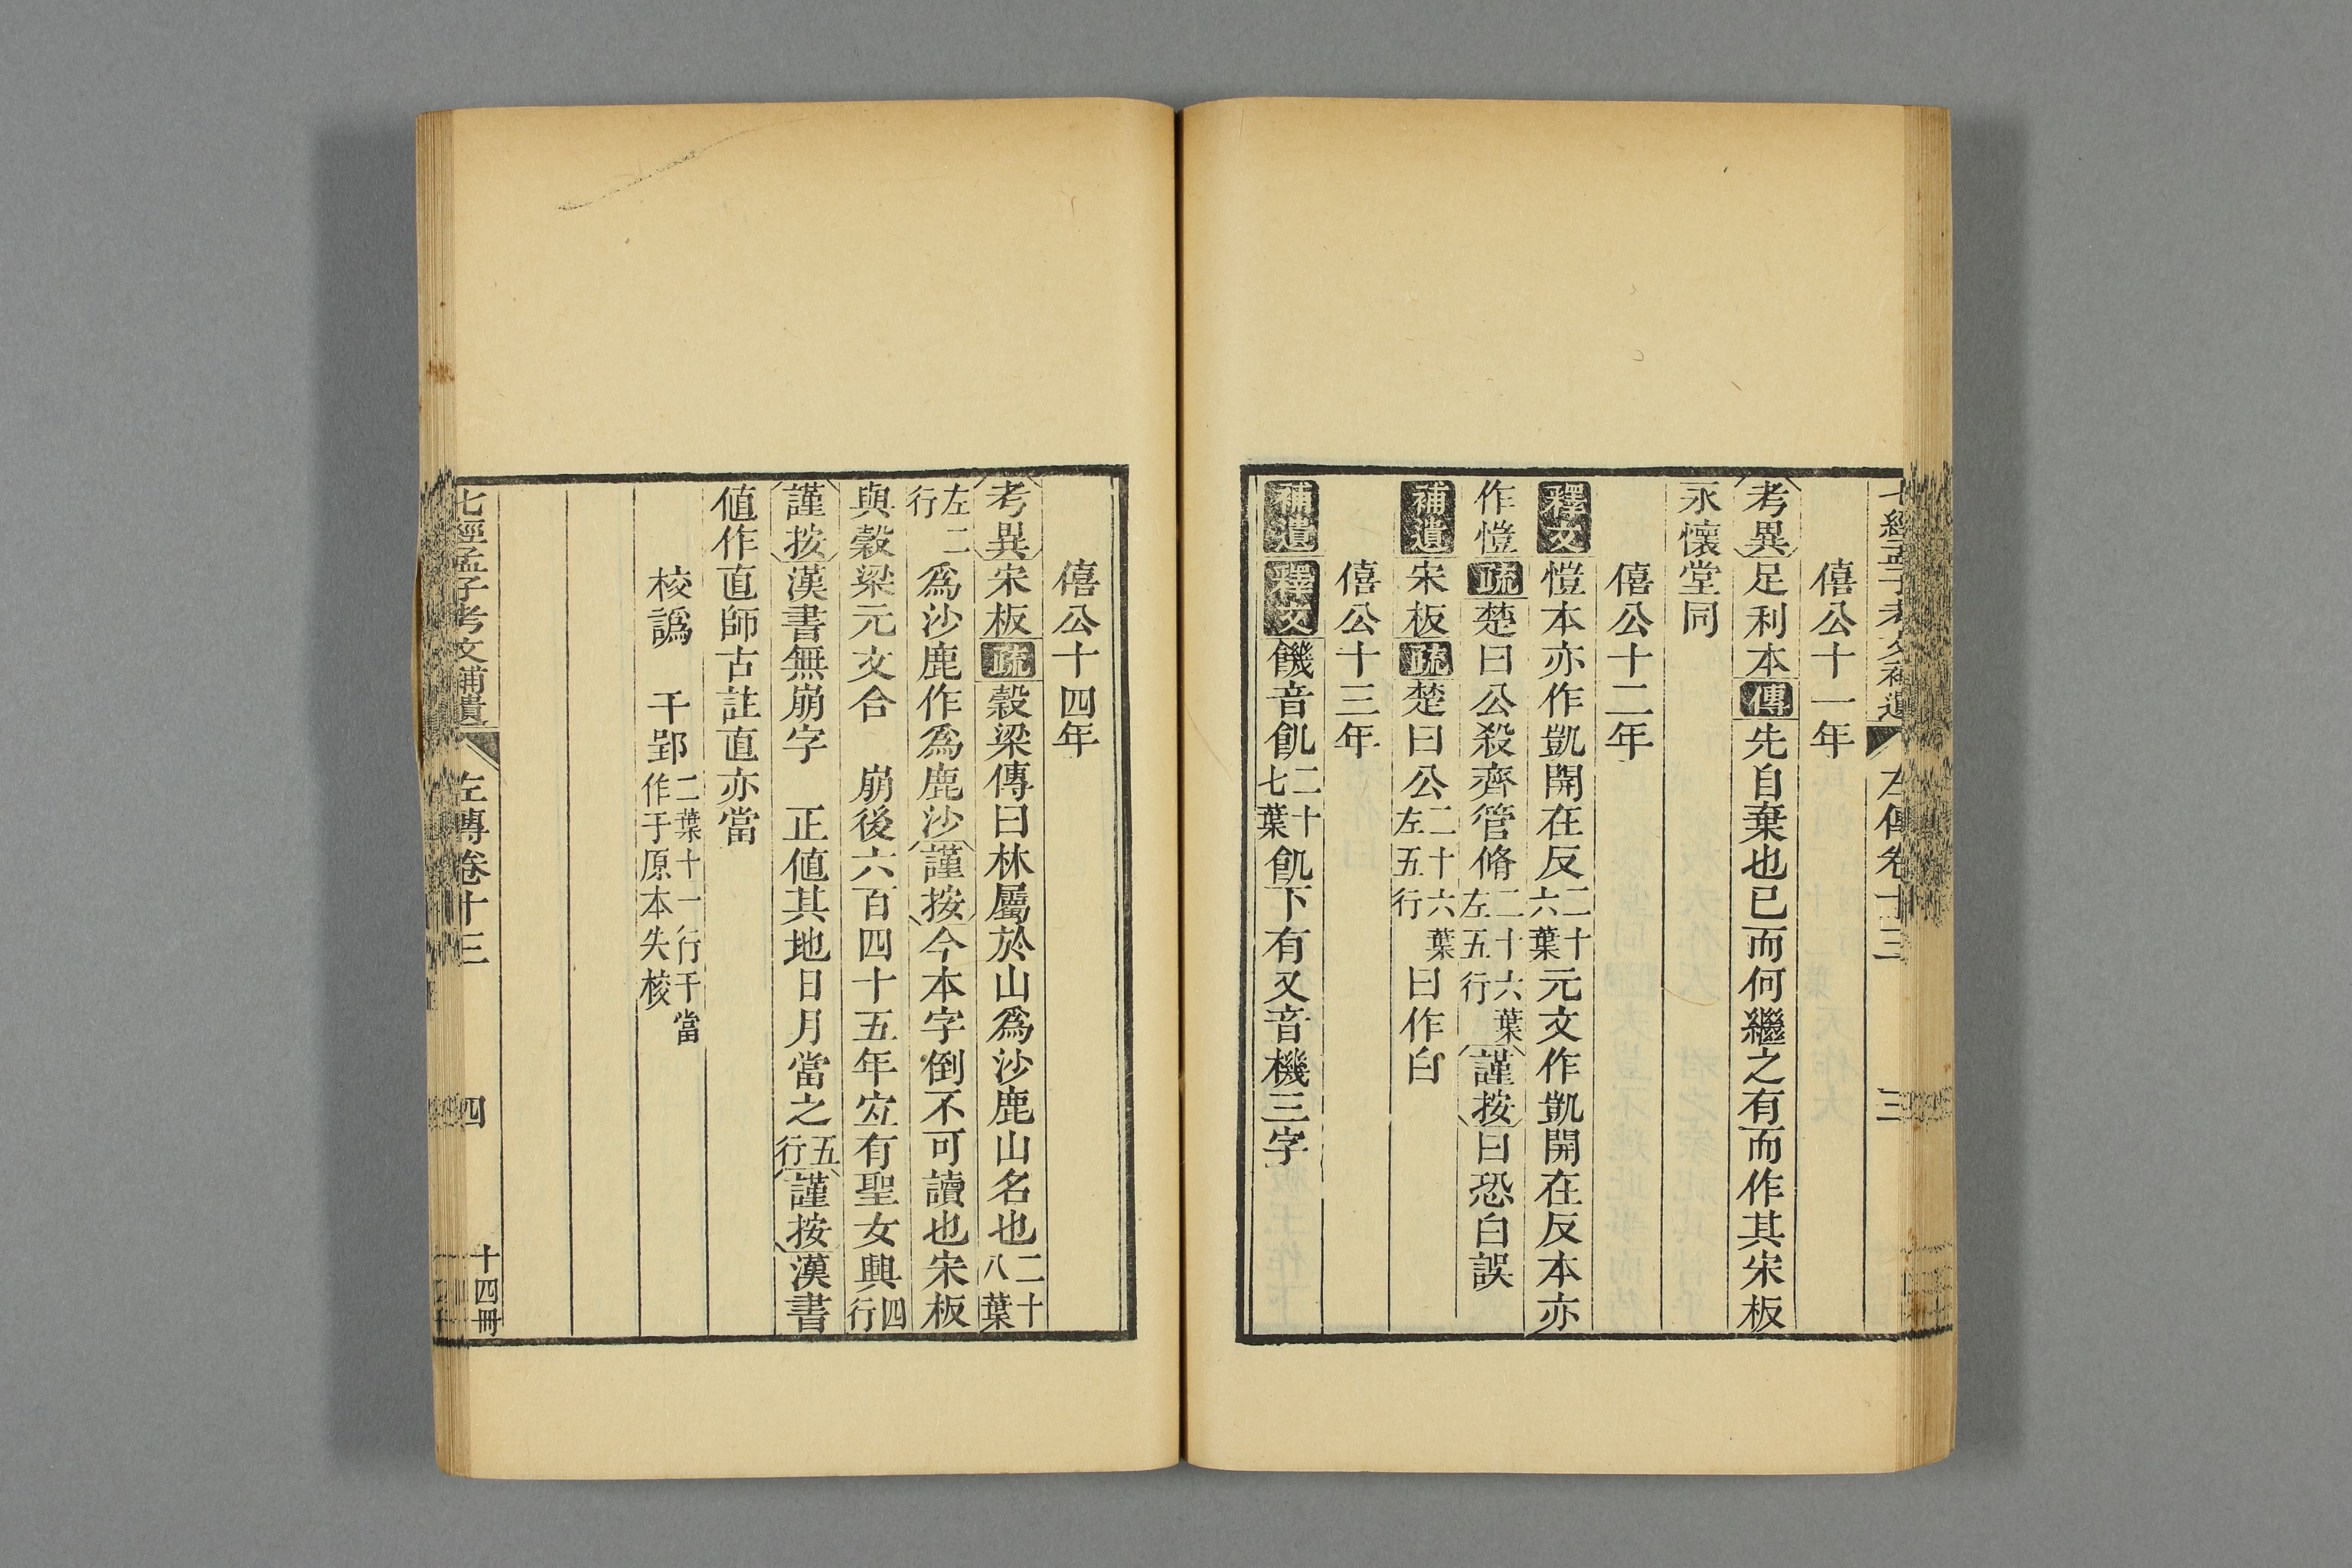 七經孟子考文補遺 左傳卷十三 三
僖公十一年
考異足利本傳先自棄也已而何繼之有而作其宋板
永懷堂同
僖公十二年
釋文愷本亦作凱開在反二十六葉元文作凱開在反本亦
作愷疏楚曰公殺齊管脩二十六葉左五行謹按曰恐白誤
補遺宋板疏楚曰公二十六葉左五行曰作白
僖公十三年
補遺釋文饑音飢二十七葉飢下有又音機三字
僖公十四年
考異宋板疏穀梁傳曰林屬於山爲沙鹿山名也二十八葉
左二行爲沙鹿作爲鹿沙謹按今本字倒不可讀也宋板
與穀梁元文合 崩後六百四十五年宜有聖女興四行
謹按漢書無崩字 正值其地日月當之五行謹按漢書
值作直師古註直亦當
校譌 干郢二葉十一行干當作于原本失校
七經孟子考文補遺 左傳卷十三 四 十四冊